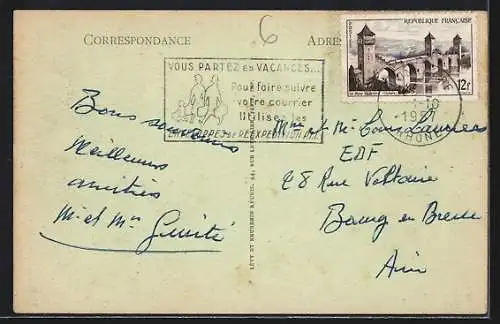 CORRESPONDANCE
6
VOUS PARTEZ EN VACANCES...
Pour faire suivre
votre courrier
Utilisez les
ENVELOPPES de RÉEXPÉDITION
REPUBLIQUE FRANÇAISE
12f
1957
RHONE
Bons souvenirs
Meilleures
amitiés
M. et Mme
Mme et M.
EDF
28 Rue Voltaire
Bourg en Bresse
Ain
LÉVY ET NEURDEIN RÉUNIS, 44, RUE